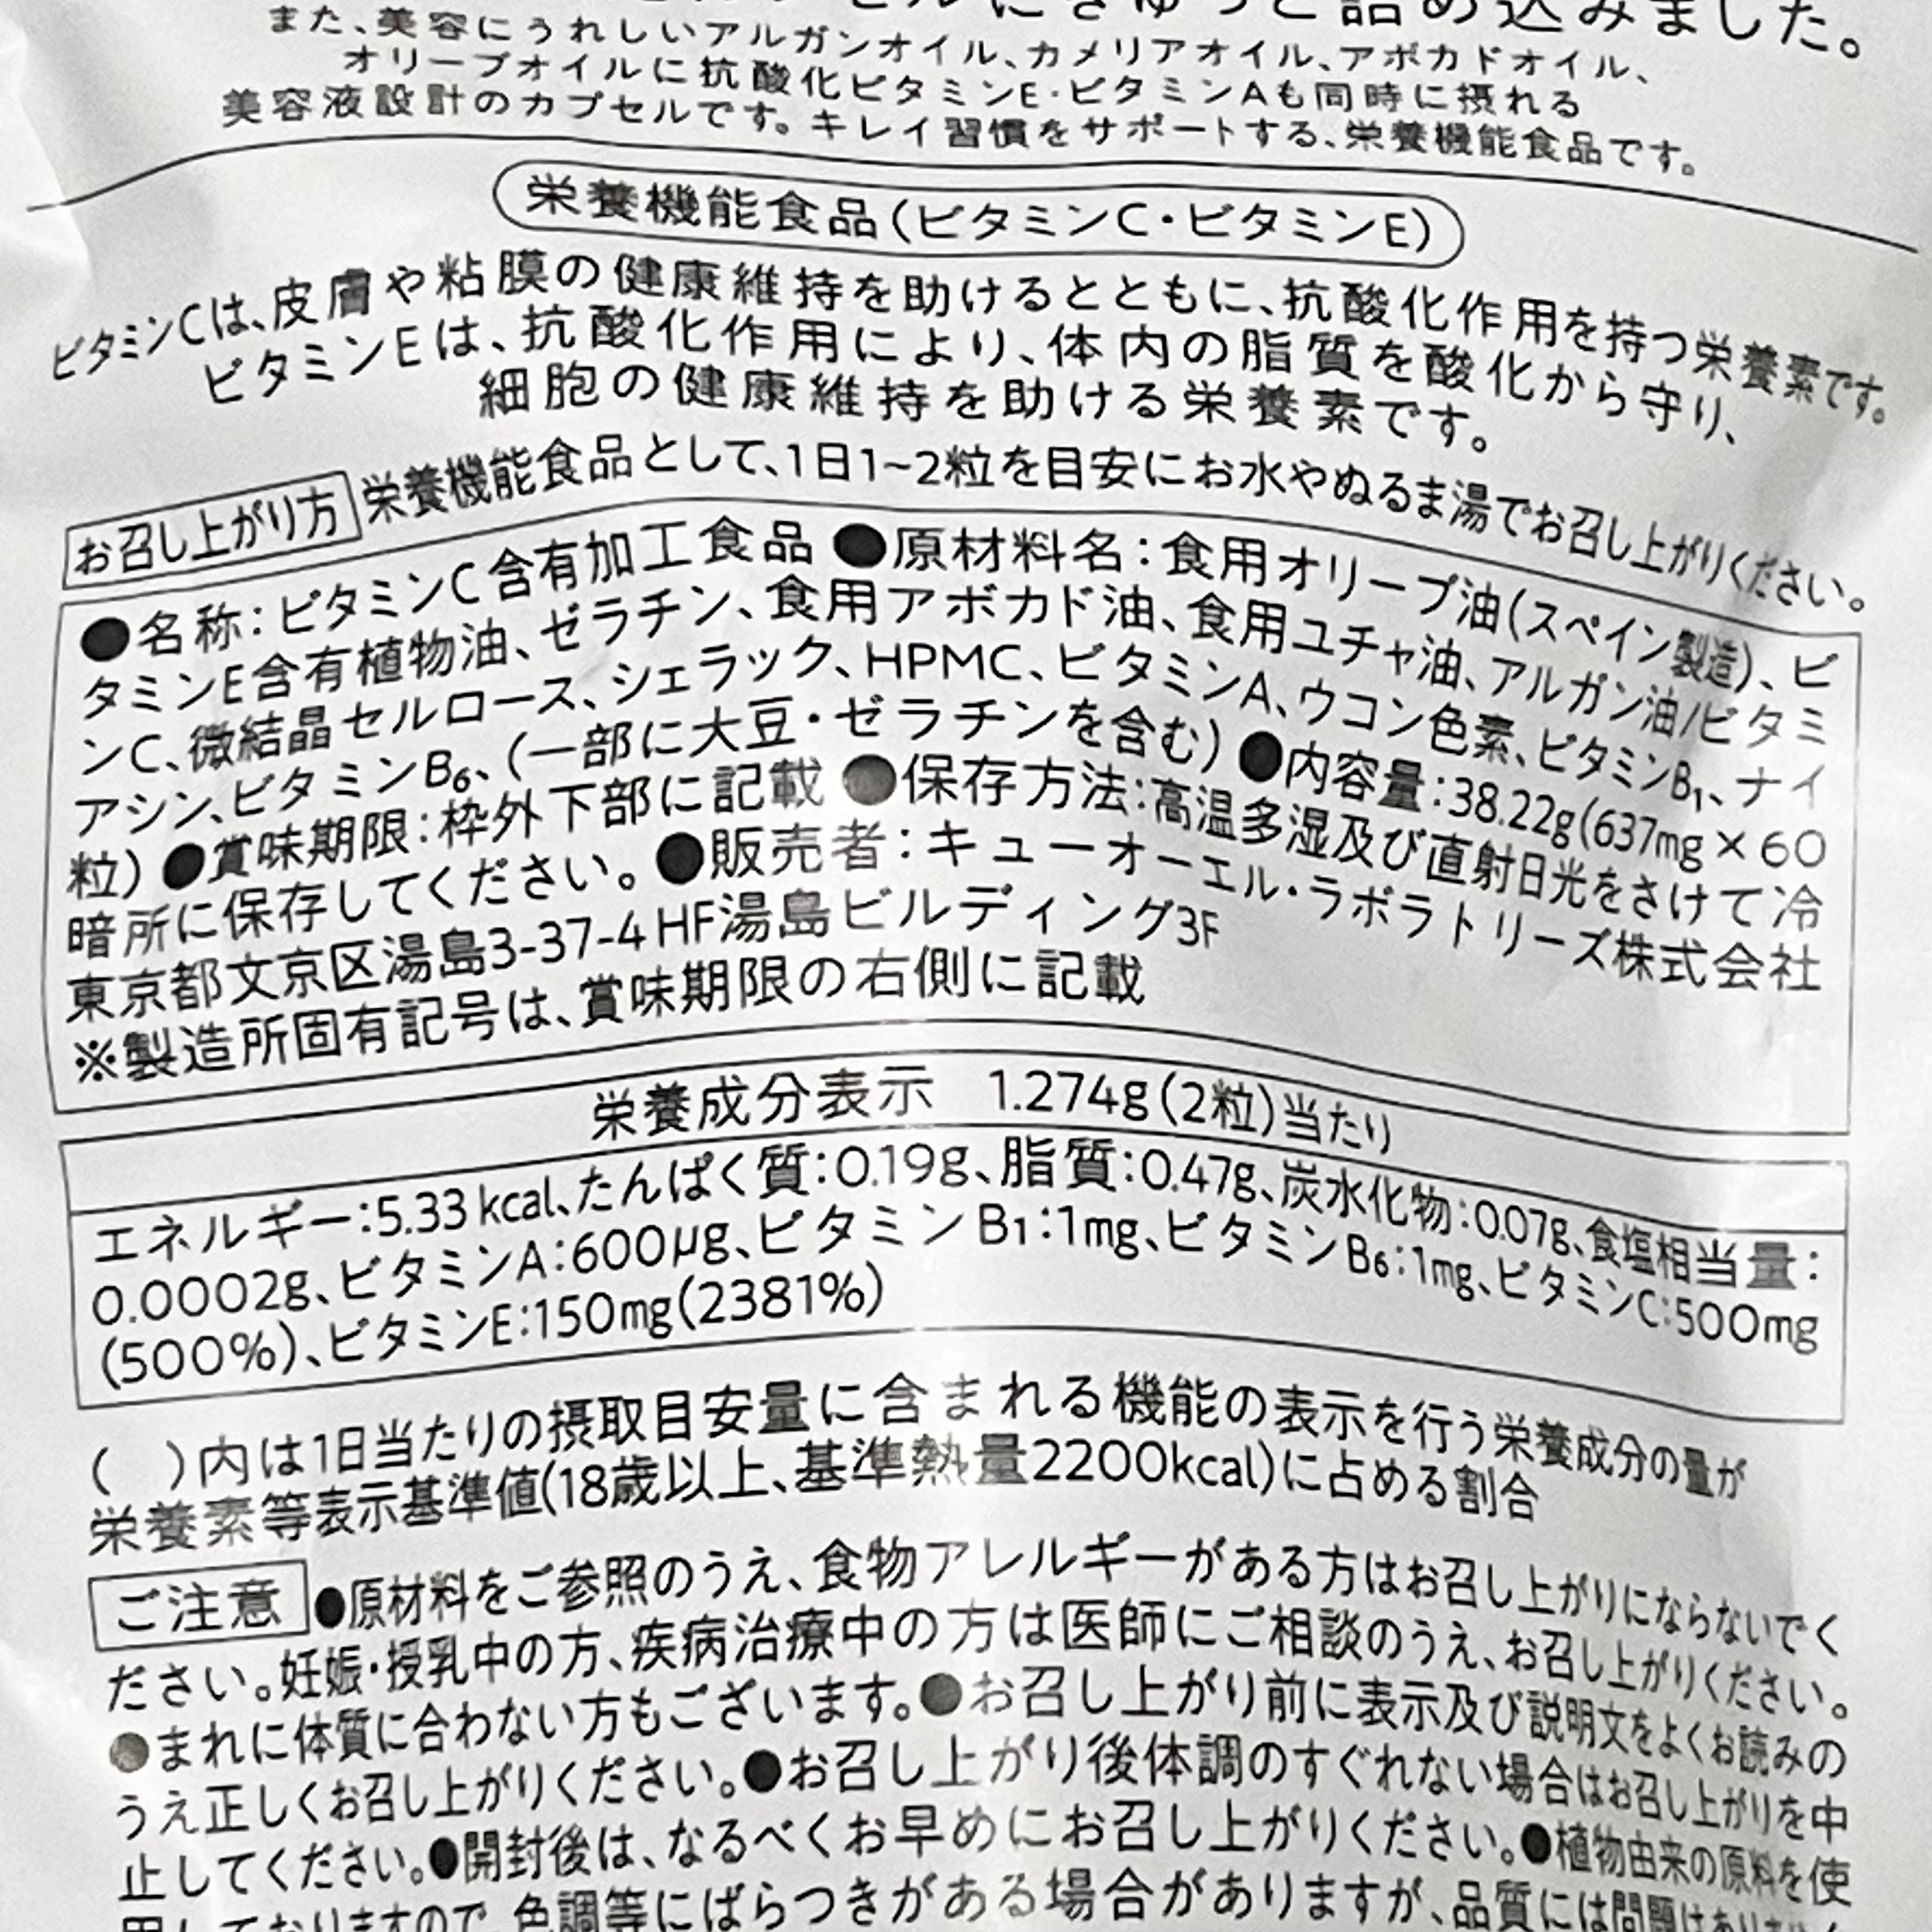 にぎゅっと詰め込みました。
また、美容にうれしいアルガンオイル、カメリアオイル、アボカドオイル、
オリーブオイルに抗酸化ビタミンE・ビタミンAも同時に摂れる
美容液設計のカプセルです。キレイ習慣をサポートする、栄養機能食品です。
栄養機能食品(ビタミンC・ビタミンE)
ビタミンCは、皮膚や粘膜の健康維持を助けるとともに、抗酸化作用を持つ栄養素です。
ビタミンEは、抗酸化作用により、体内の脂質を酸化から守り、
細胞の健康維持を助ける栄養素です。
お召し上がり方 栄養機能食品として、1日1~2粒を目安にお水やぬるま湯でお召し上がりください。
●名称:ビタミンC含有加工食品 ●原材料名:食用オリーブ油(スペイン製造)、ビ
タミンE含有植物油、ゼラチン、食用アボカド油、食用ユチャ油、アルガン油/ビタミ
ンC、微結晶セルロース、シェラック、HPMC、ビタミンA、ウコン色素、ビタミンB₁、ナイ
アシン、ビタミンB₆、(一部に大豆・ゼラチンを含む) ●内容量:38.22g(637mg×60
粒) ●賞味期限:枠外下部に記載 ●保存方法:高温多湿及び直射日光をさけて冷
暗所に保存してください。●販売者:キューオーエル・ラボラトリーズ株式会社
東京都文京区湯島3-37-4 HF湯島ビルディング3F
※製造所固有記号は、賞味期限の右側に記載
栄養成分表示 1.274g(2粒)当たり
エネルギー:5.33kcal、たんぱく質:0.19g、脂質:0.47g、炭水化物:0.07g、食塩相当量:
0.0002g、ビタミンA:600μg、ビタミンB₁:1mg、ビタミンB₆:1mg、ビタミンC:500mg
(500%)、ビタミンE:150mg(2381%)
( )内は1日当たりの摂取目安量に含まれる機能の表示を行う栄養成分の量が
栄養素等表示基準値(18歳以上、基準熱量2200kcal)に占める割合
ご注意 ●原材料をご参照のうえ、食物アレルギーがある方はお召し上がりにならないでく
ださい。妊娠・授乳中の方、疾病治療中の方は医師にご相談のうえ、お召し上がりください。
●まれに体質に合わない方もございます。●お召し上がり前に表示及び説明文をよくお読みの
うえ正しくお召し上がりください。●お召し上がり後体調のすぐれない場合はお召し上がりを中
止してください。●開封後は、なるべくお早めにお召し上がりください。●植物由来の原料を使
用しておりますので、色調等にばらつきがある場合がありますが、品質には問題はありま